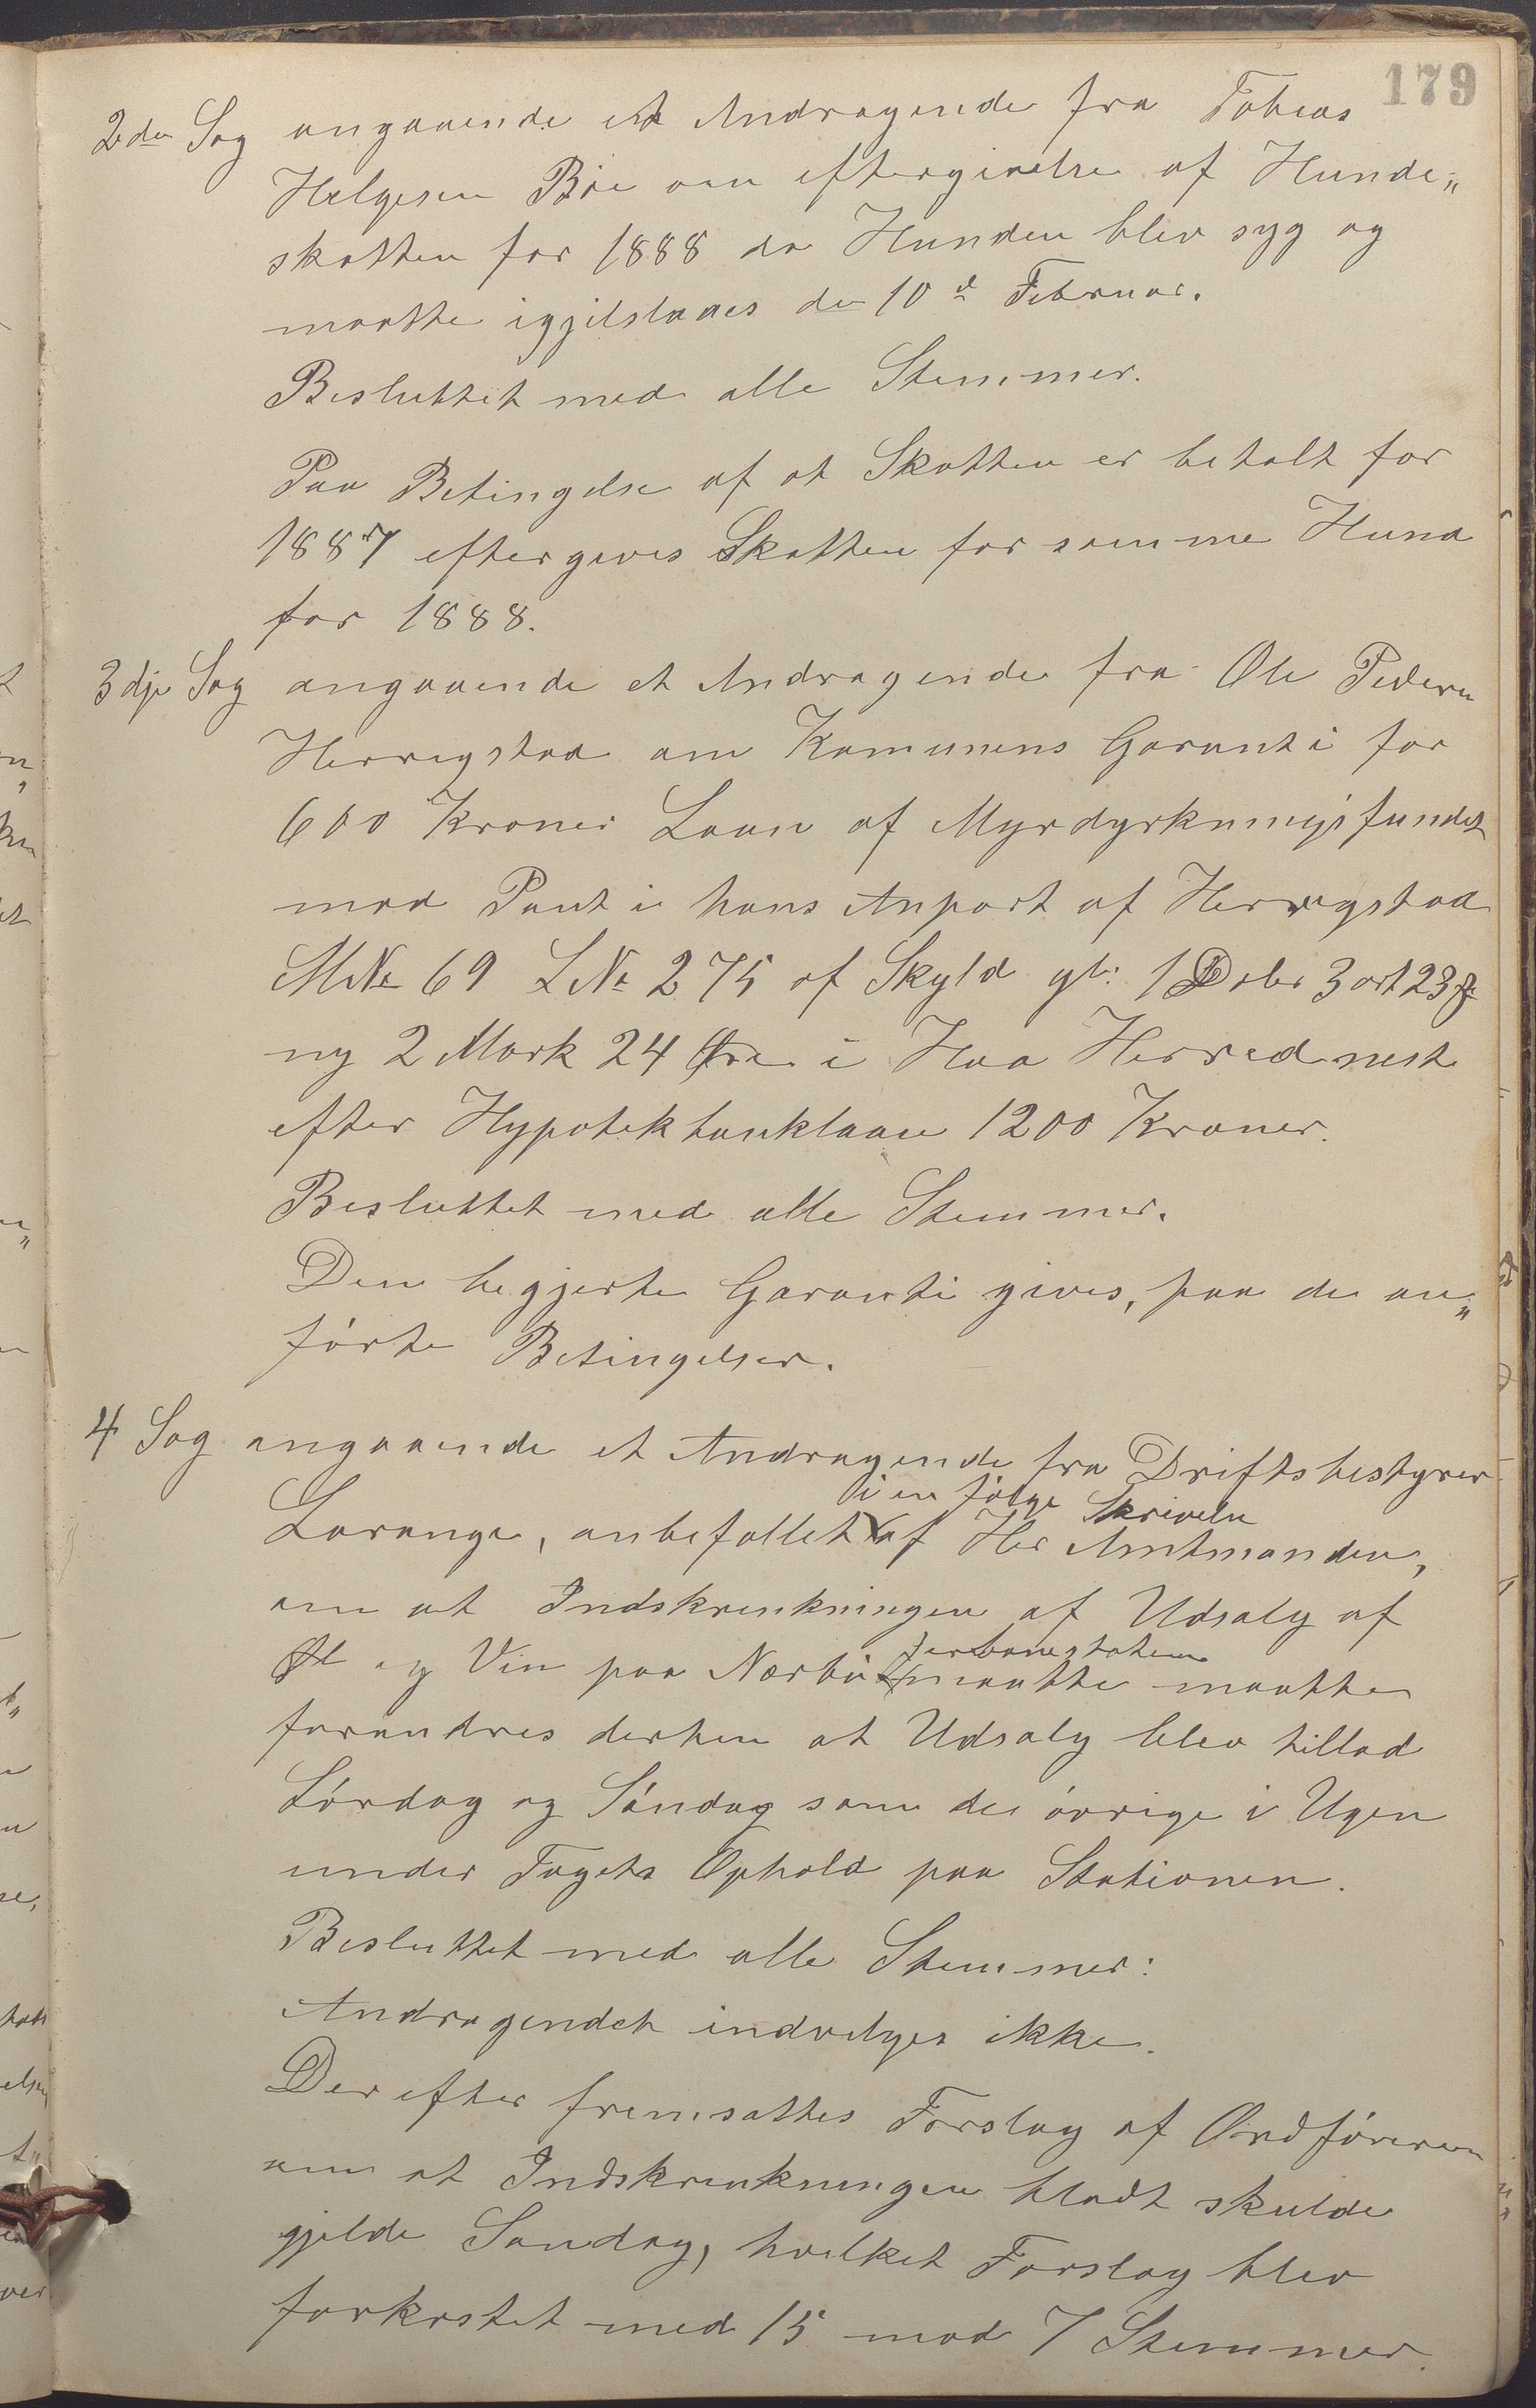 179
2den Sag angaaende et Andragende fra Tobias
Helgesen Böe om eftergivelse af Hunde„
skatten for 1888 da Hunden blev syg og
maatte igjelslaaes den 10d Februar.
Besluttet med alle Stemmer.
Paa Betingelse af at Skatten er betalt for
1887 eftergives Skatten for samme Hund
for 1888.
3dje Sag angaaende et Andragende fra Ole Pedersen
Herregstad om Komunens Garanti for
600 Kroner Laan af Myrdyrkningsfundet
mod Pant i hans Anpart af Herregstad
MNo 69 LNo 275 af Skyld gl: 1 Daler 3 ort 23 ß
ny 2 Mark 24 Øre i Haa Herred nest
efter Hypotekbanklaan 1200 Kroner.
Besluttet med alle Stemmer.
Den begjerte Garanti gives, paa de an„
förte Betingelser.
4 Sag angaaende et Andragende fra Driftsbestyrer
i en fölge Skrivelse
Lorange, anbefallet af Her Amtmanden,
om at Indskrenkningen af Udsalg af
jernbanestation
Øl og Vin paa Nærbö maatte maatte
forandres derhen at Udsalg blev tillad
Lördag og Söndag som de övrige i Ugen
under Togets Ophold paa Stationen.
Besluttet med alle Stemmer:
Andragendet indvilges ikke.
Derefter fremsattes Forslag af Ordföreren
om at Indskrenkningen blodt skulde
gjelde Sondag, hvilket Forslag blev
forkastet med 15 mod 7 Stemmer.